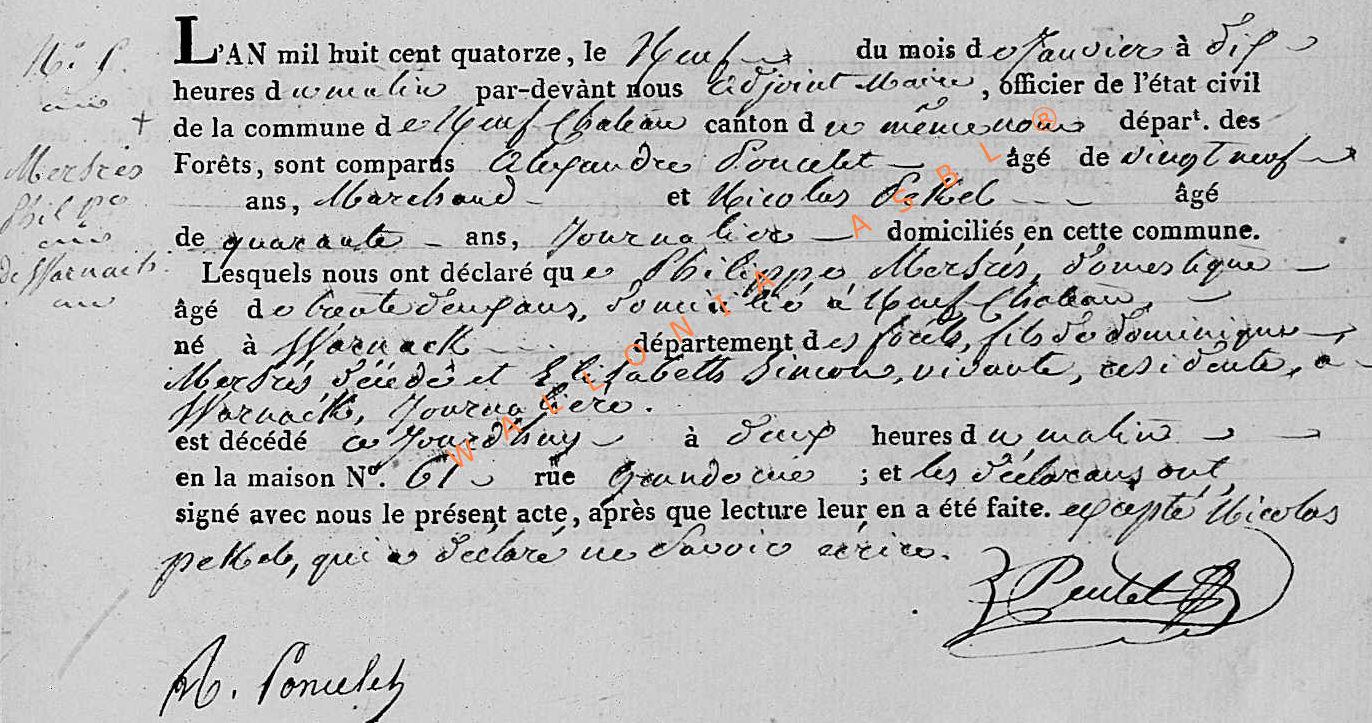 L'AN mil huit cent quatorze, le Neuf du mois de Janvier à dix
heures du matin par-devànt nous adjoint Maire, officier de l'état civil
de la commune de Neuf-Chateau canton du même nom dépar^t. des
Forêts, sont comparus Alexandre Poncelet âgé de vingt neuf
ans, Marchand et Nicolas Pekel âgé
de quarante ans, Journalier domiciliés en cette commune.
Lesquels nous ont déclaré que Philippe Mertrés, domestique
âgé de trente deux ans, domicilié à Neuf-Chateau,
né à Warnack département des forêts, fils de dominique
Mertrés décédé et Elisabeth Simon, vivante, residente, a
Warnack, Journaliere.
est décédé ce Jourdhuy à deux heures du matin
en la maison N°. 61 rue Grande rue ; et les déclarans ont
signé avec nous le présent acte, après que lecture leur en a été faite. excepté Nicolas
pekel, qui a déclaré ne savoir écrire.
A. Poncelet
Mertrés
Philpe
de Warnach
WALLONIA ASBL ®